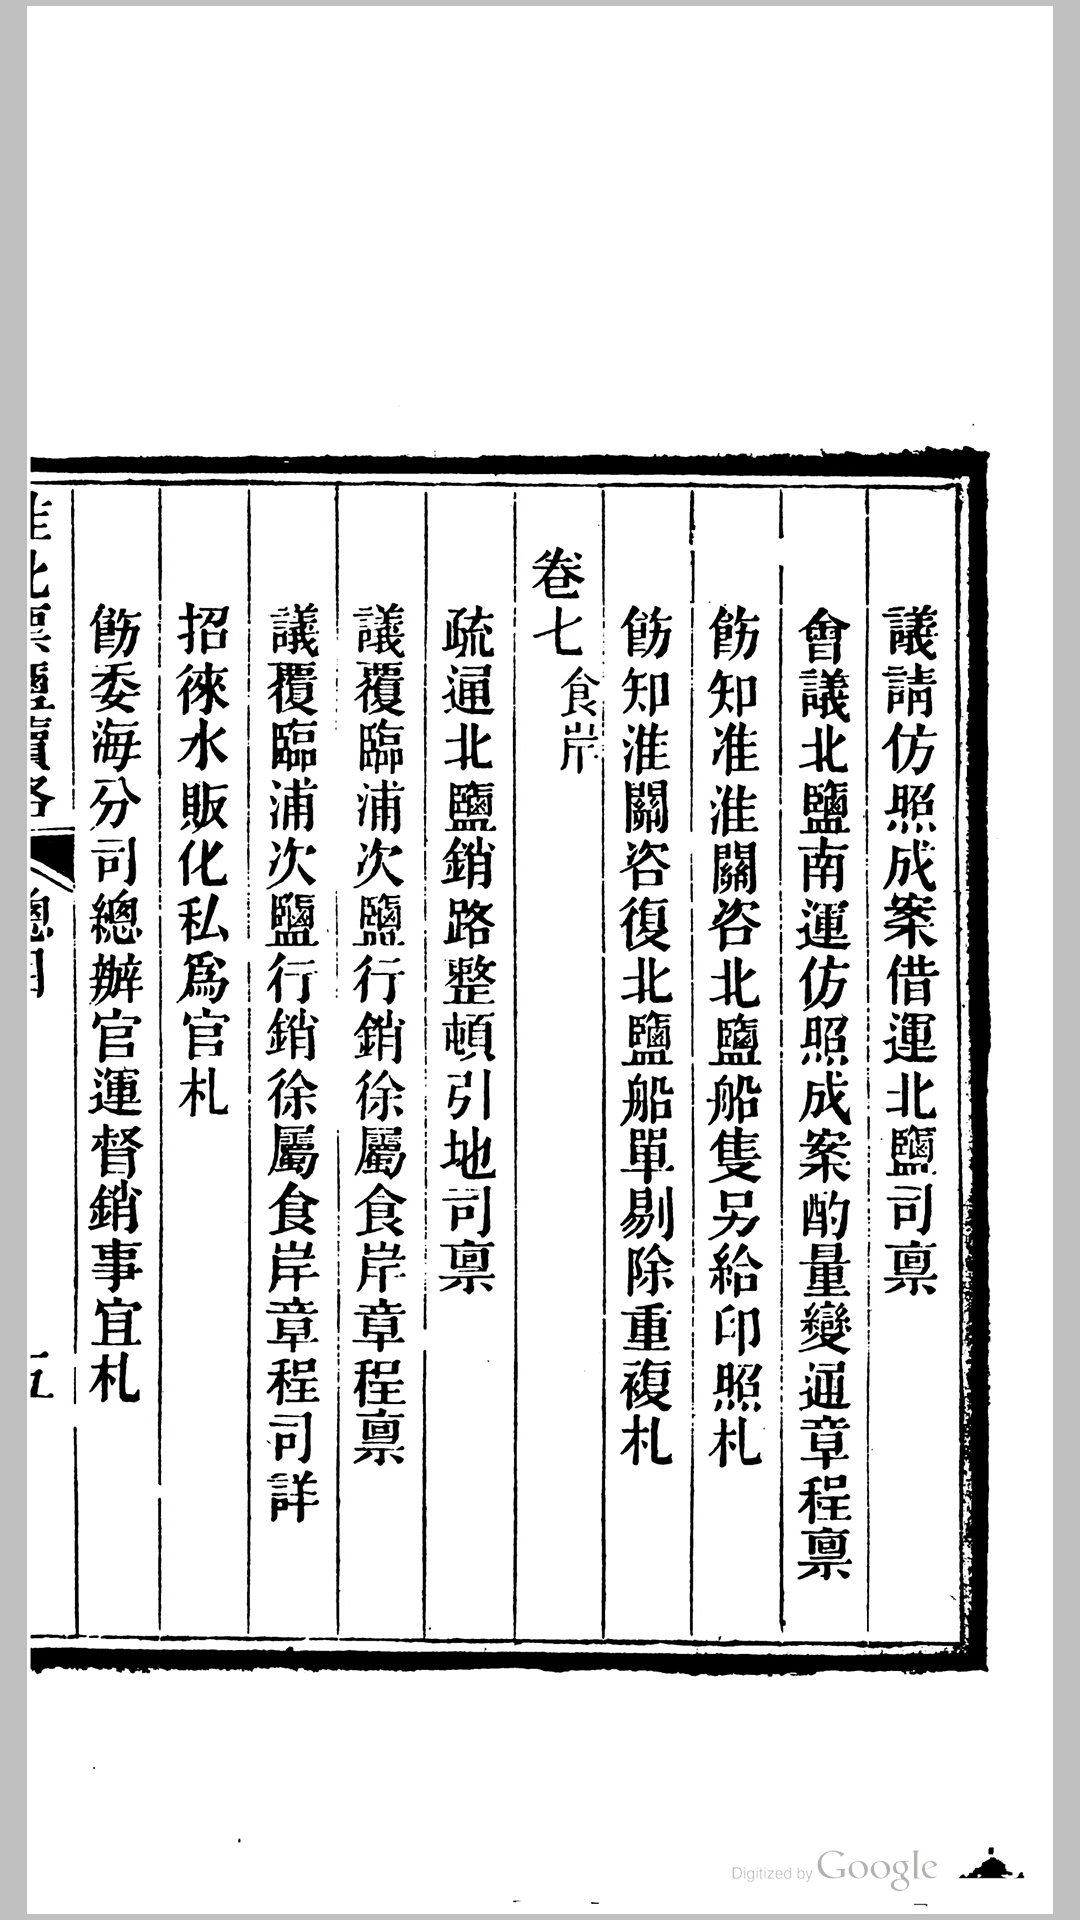 議請仿照成案借運北鹽司禀
會議北鹽南運仿照成案酌量變通章程禀
飭知准淮關咨北鹽船隻另給印照札
飭知淮關咨復北鹽船單剔除重複札
卷七 食岸
疏通北鹽銷路整頓引地司禀
議覆臨浦次鹽行銷徐屬食岸章程禀
議覆臨浦次鹽行銷徐屬食岸章程司詳
招徠水販化私爲官札
飭委海分司總辦官運督銷事宜札
淮北票鹽續略 總目 五
Digitized by Google